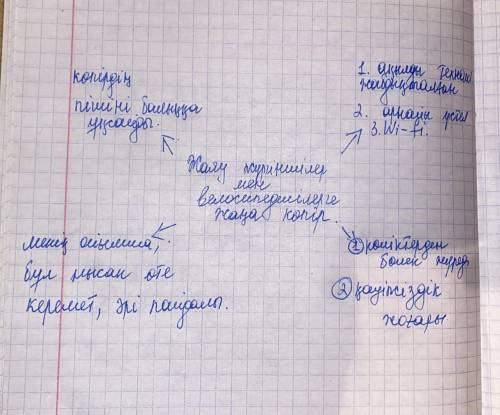 көпірдің
пішіні балыққа
ұқсайды.
1. ақылды технол
жабдықталған
2. арнайы үстел
3. Wi-fi.
Жаяу жүргіншілер
мен
велосипедшілерге
жаңа көпір.
менің ойымша,
бұл нысан өте
керемет, әрі пайдалы.
1 көліктерден
бөлек жүреді
2 қауіпсіздік
жоғары